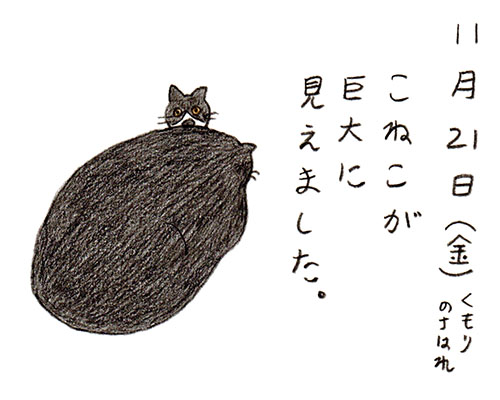 11月21日(金)
くもり
のちはれ
こねこが
巨大に
見えました。